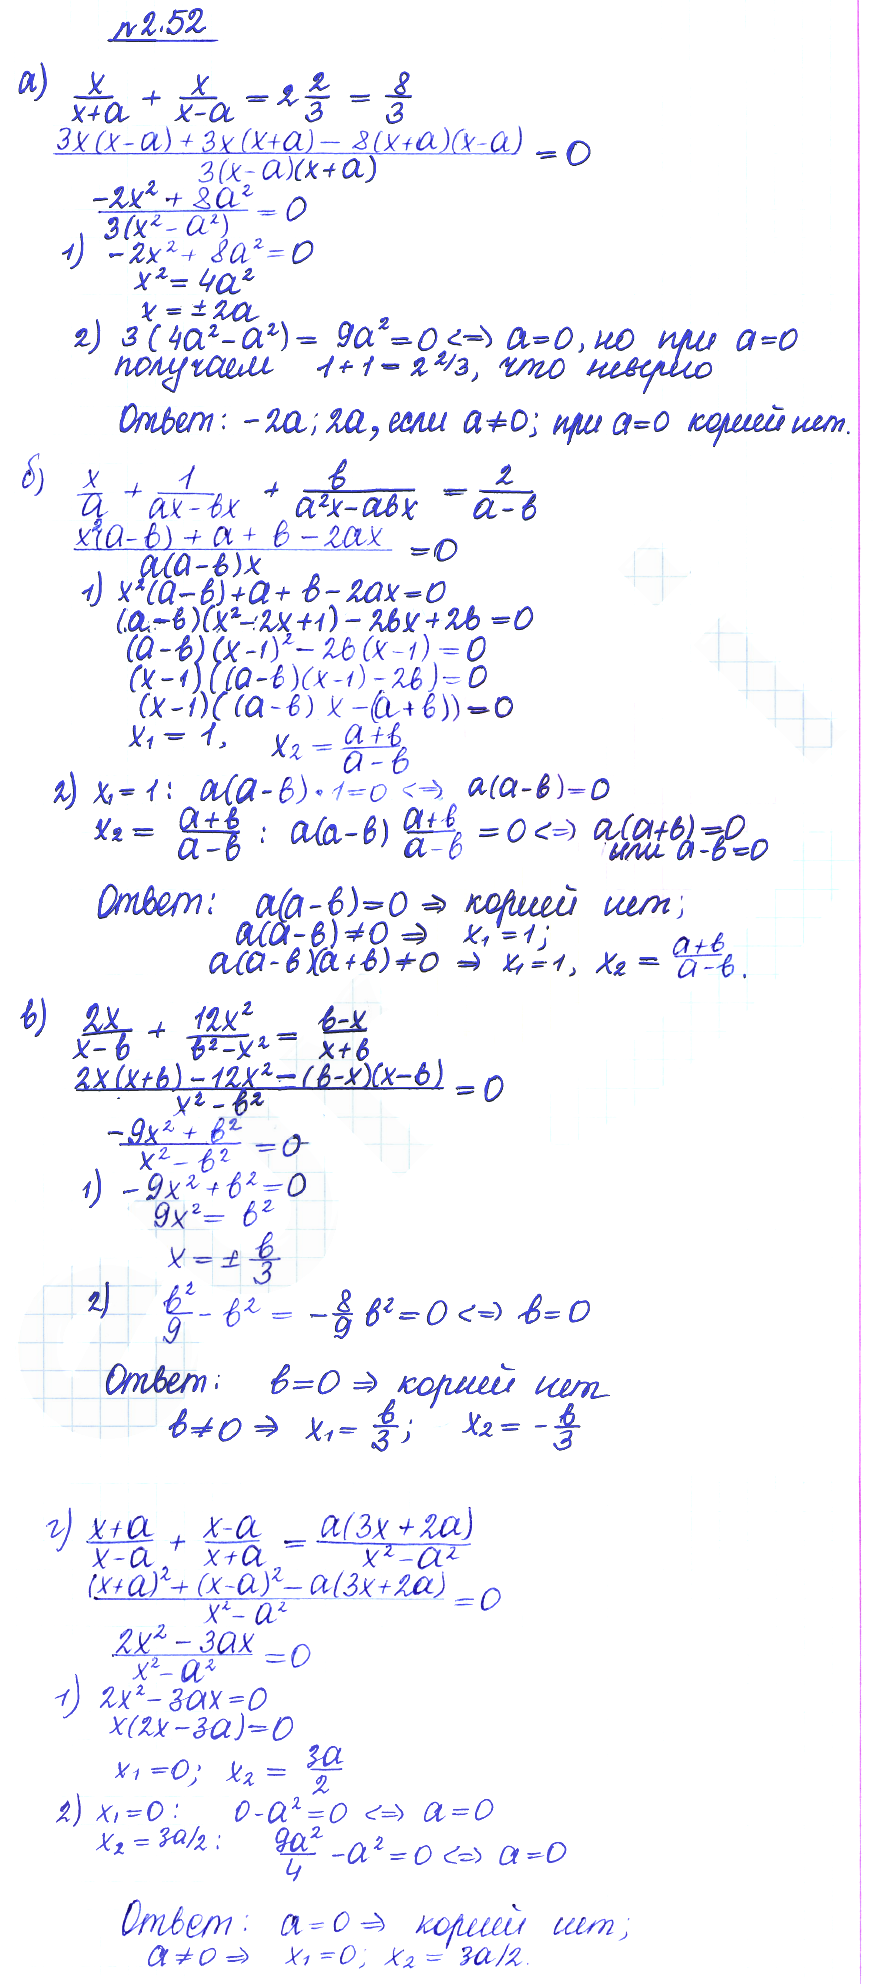 №2.52
а) x/(x+a) + x/(x-a) = 2 2/3 = 8/3
(3x(x-a) + 3x(x+a) - 8(x+a)(x-a))/(3(x-a)(x+a)) = 0
(-2x² + 8a²)/(3(x² - a²)) = 0
1) -2x² + 8a² = 0
x² = 4a²
x = ±2a
2) 3(4a² - a²) = 9a² = 0 <=> a=0, но при a=0
получаем 1+1 = 2 2/3, что неверно
Ответ: -2a; 2a, если a≠0; при a=0 корней нет.
б) x/a + 1/(ax-bx) + b/(a²x-abx) = 2/(a-b)
(x²(a-b) + a + b - 2ax)/(a(a-b)x) = 0
1) x²(a-b) + a + b - 2ax = 0
(a-b)(x² - 2x + 1) - 2bx + 2b = 0
(a-b)(x-1)² - 2b(x-1) = 0
(x-1)((a-b)(x-1) - 2b) = 0
(x-1)((a-b)x - (a+b)) = 0
x₁ = 1, x₂ = (a+b)/(a-b)
2) x₁ = 1: a(a-b)·1=0 <=> a(a-b)=0
x₂ = (a+b)/(a-b) : a(a-b) (a+b)/(a-b) = 0 <=> a(a+b)=0
или a-b=0
Ответ: a(a-b)=0 => корней нет;
a(a-b)≠0 => x₁=1;
a(a-b)(a+b)≠0 => x₁=1, x₂ = (a+b)/(a-b).
в) 2x/(x-b) + 12x²/(b²-x²) = (b-x)/(x+b)
(2x(x+b) - 12x² - (b-x)(x-b))/(x² - b²) = 0
(-9x² + b²)/(x² - b²) = 0
1) -9x² + b² = 0
9x² = b²
x = ± b/3
2) b²/9 - b² = -8/9 b² = 0 <=> b=0
Ответ: b=0 => корней нет
b≠0 => x₁ = b/3; x₂ = -b/3
г) (x+a)/(x-a) + (x-a)/(x+a) = a(3x+2a)/(x²-a²)
((x+a)² + (x-a)² - a(3x+2a))/(x²-a²) = 0
(2x² - 3ax)/(x²-a²) = 0
1) 2x² - 3ax = 0
x(2x-3a) = 0
x₁ = 0; x₂ = 3a/2
2) x₁=0: 0-a²=0 <=> a=0
x₂ = 3a/2: 9a²/4 - a² = 0 <=> a=0
Ответ: a=0 => корней нет;
a≠0 => x₁=0; x₂ = 3a/2.